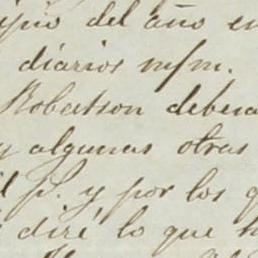 ipio del año en
diarios mfm.
Robertson debera
y algunas otras
p. y por los q
diré lo que h